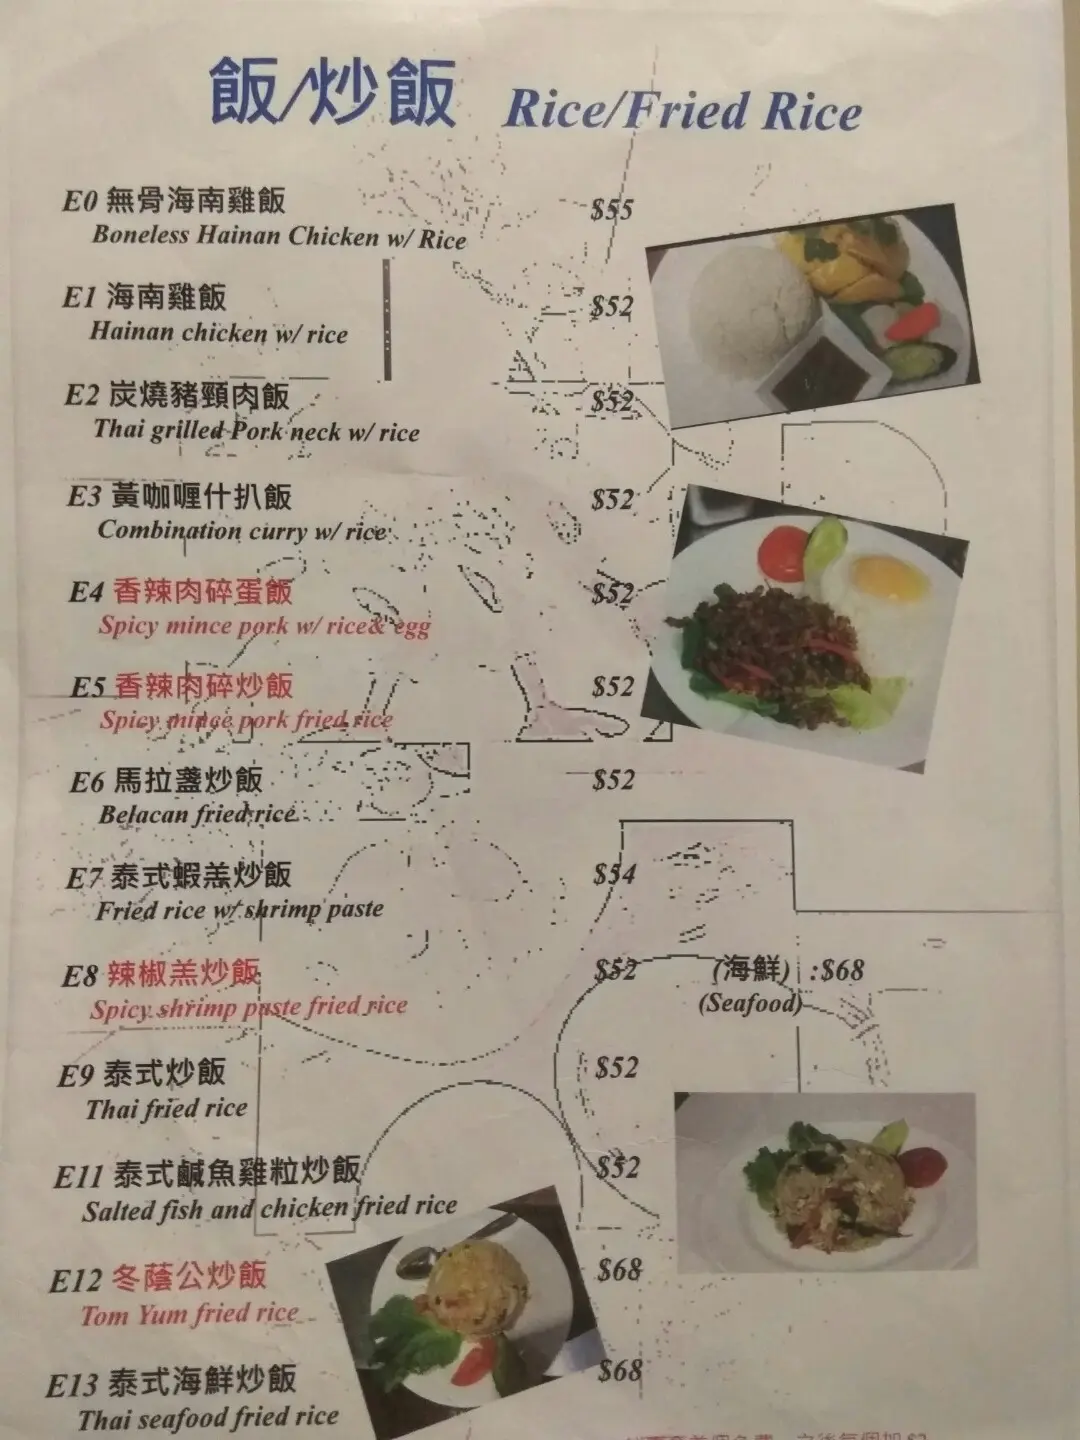 飯/炒飯 Rice/Fried Rice
E0 無骨海南雞飯 $55
Boneless Hainan Chicken w/ Rice
E1 海南雞飯 $52
Hainan chicken w/ rice
E2 炭燒豬頸肉飯 $52
Thai grilled Pork neck w/ rice
E3 黃咖喱什扒飯 $52
Combination curry w/ rice
E4 香辣肉碎蛋飯 $52
Spicy mince pork w/ rice& egg
E5 香辣肉碎炒飯 $52
Spicy mince pork fried rice
E6 馬拉盞炒飯 $52
Belacan fried rice
E7 泰式蝦羔炒飯 $54
Fried rice w/ shrimp paste
E8 辣椒羔炒飯 $52 (海鮮) :$68
Spicy shrimp paste fried rice (Seafood)
E9 泰式炒飯 $52
Thai fried rice
E11 泰式鹹魚雞粒炒飯 $52
Salted fish and chicken fried rice
E12 冬蔭公炒飯 $68
Tom Yum fried rice
E13 泰式海鮮炒飯 $68
Thai seafood fried rice